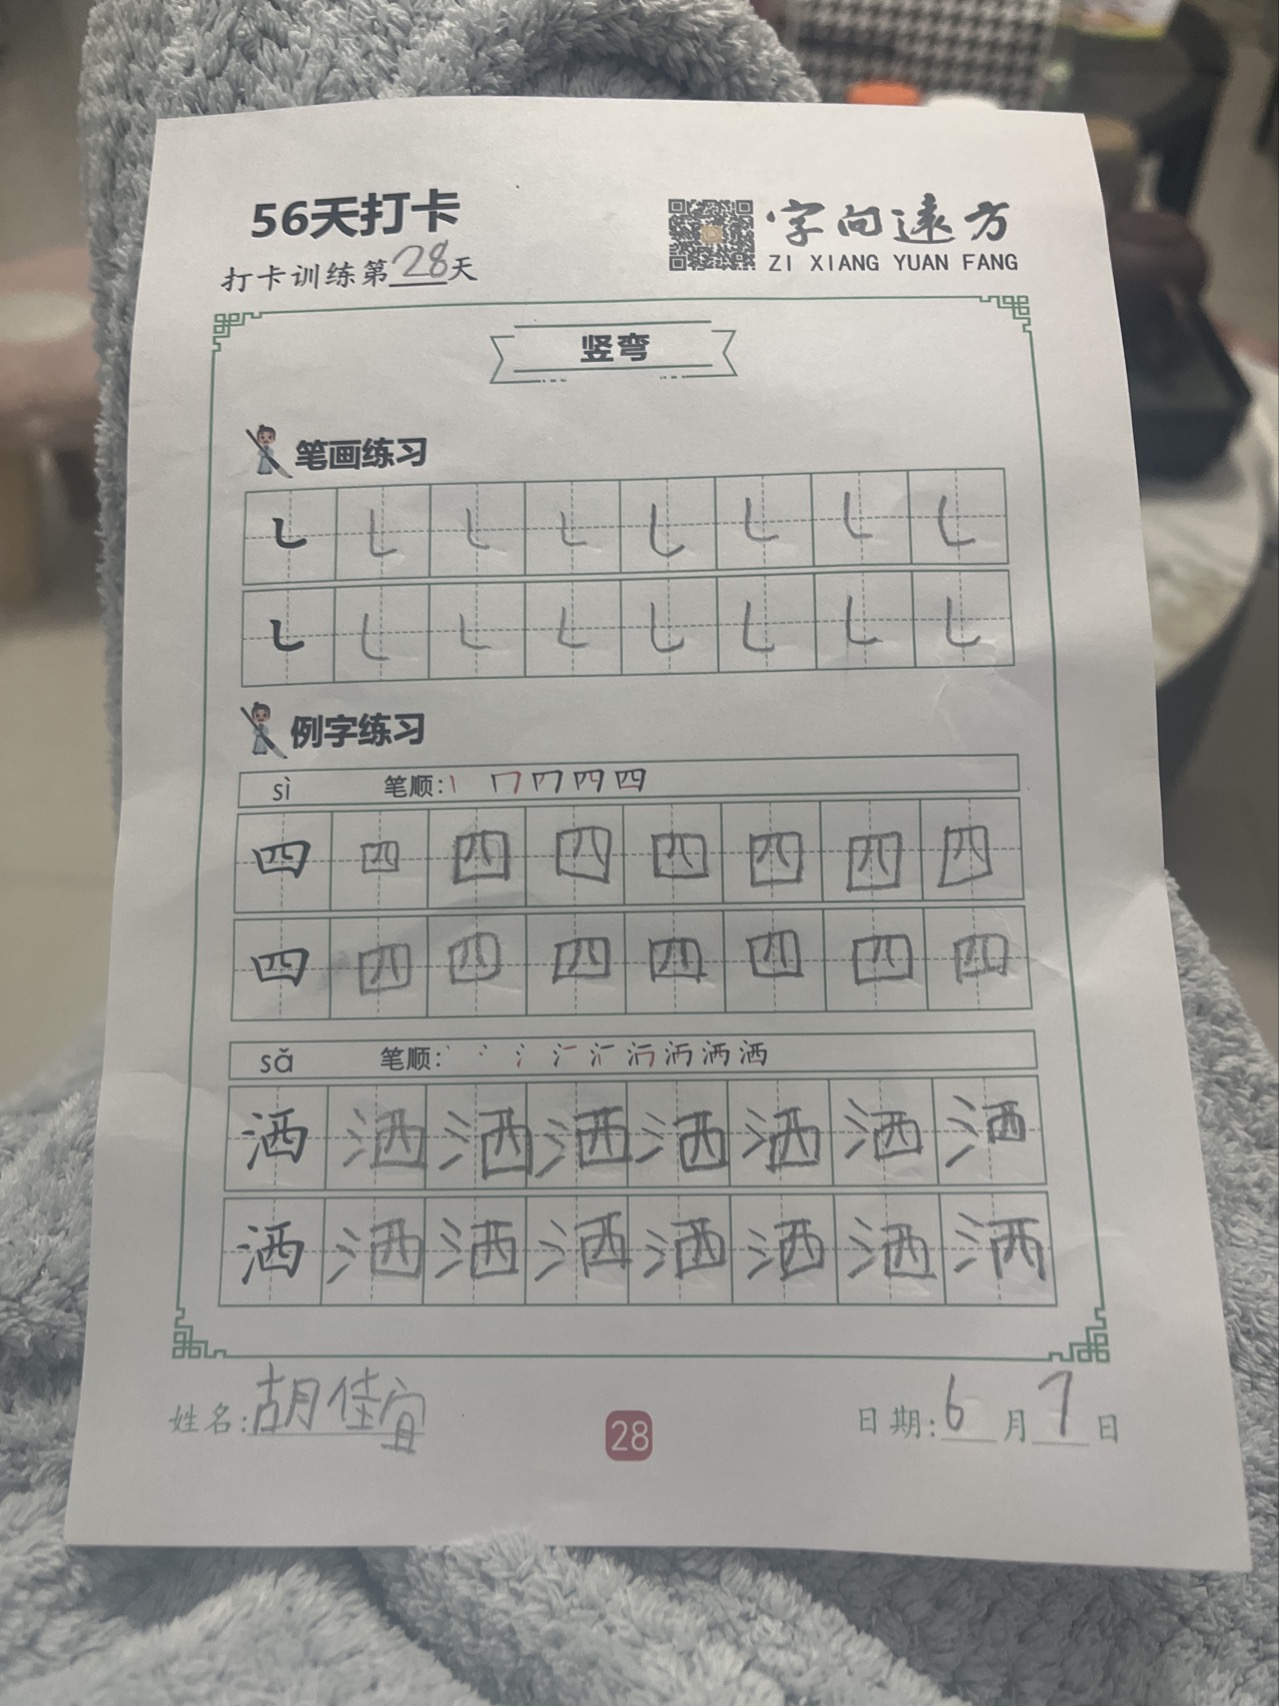 56天打卡
字向远方
ZI XIANG YUAN FANG
打卡训练第28天
竖弯
笔画练习
㇄ ㇄ ㇄ ㇄ ㇄ ㇄ ㇄ ㇄
㇄ ㇄ ㇄ ㇄ ㇄ ㇄ ㇄ ㇄
例字练习
sì 笔顺: 四
四 四 四 四 四 四 四 四
四 四 四 四 四 四 四 四
sǎ 笔顺: 洒
洒 洒 洒 洒 洒 洒 洒 洒
洒 洒 洒 洒 洒 洒 洒 洒
姓名: 胡佳宜
28
日期: 6月7日